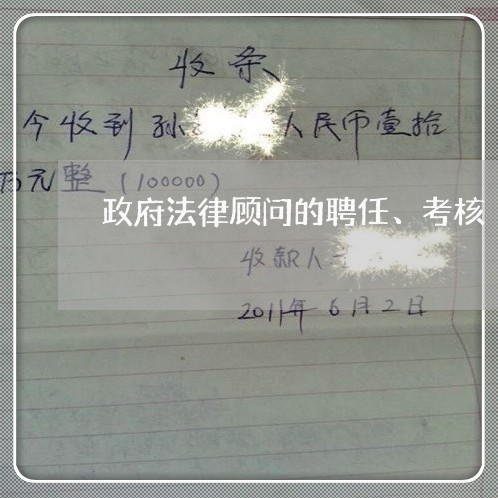 收条
今收到孙 人民币壹拾
万元整(100000)
政府法律顾问的聘任、考核
收款人
2011年6月2日